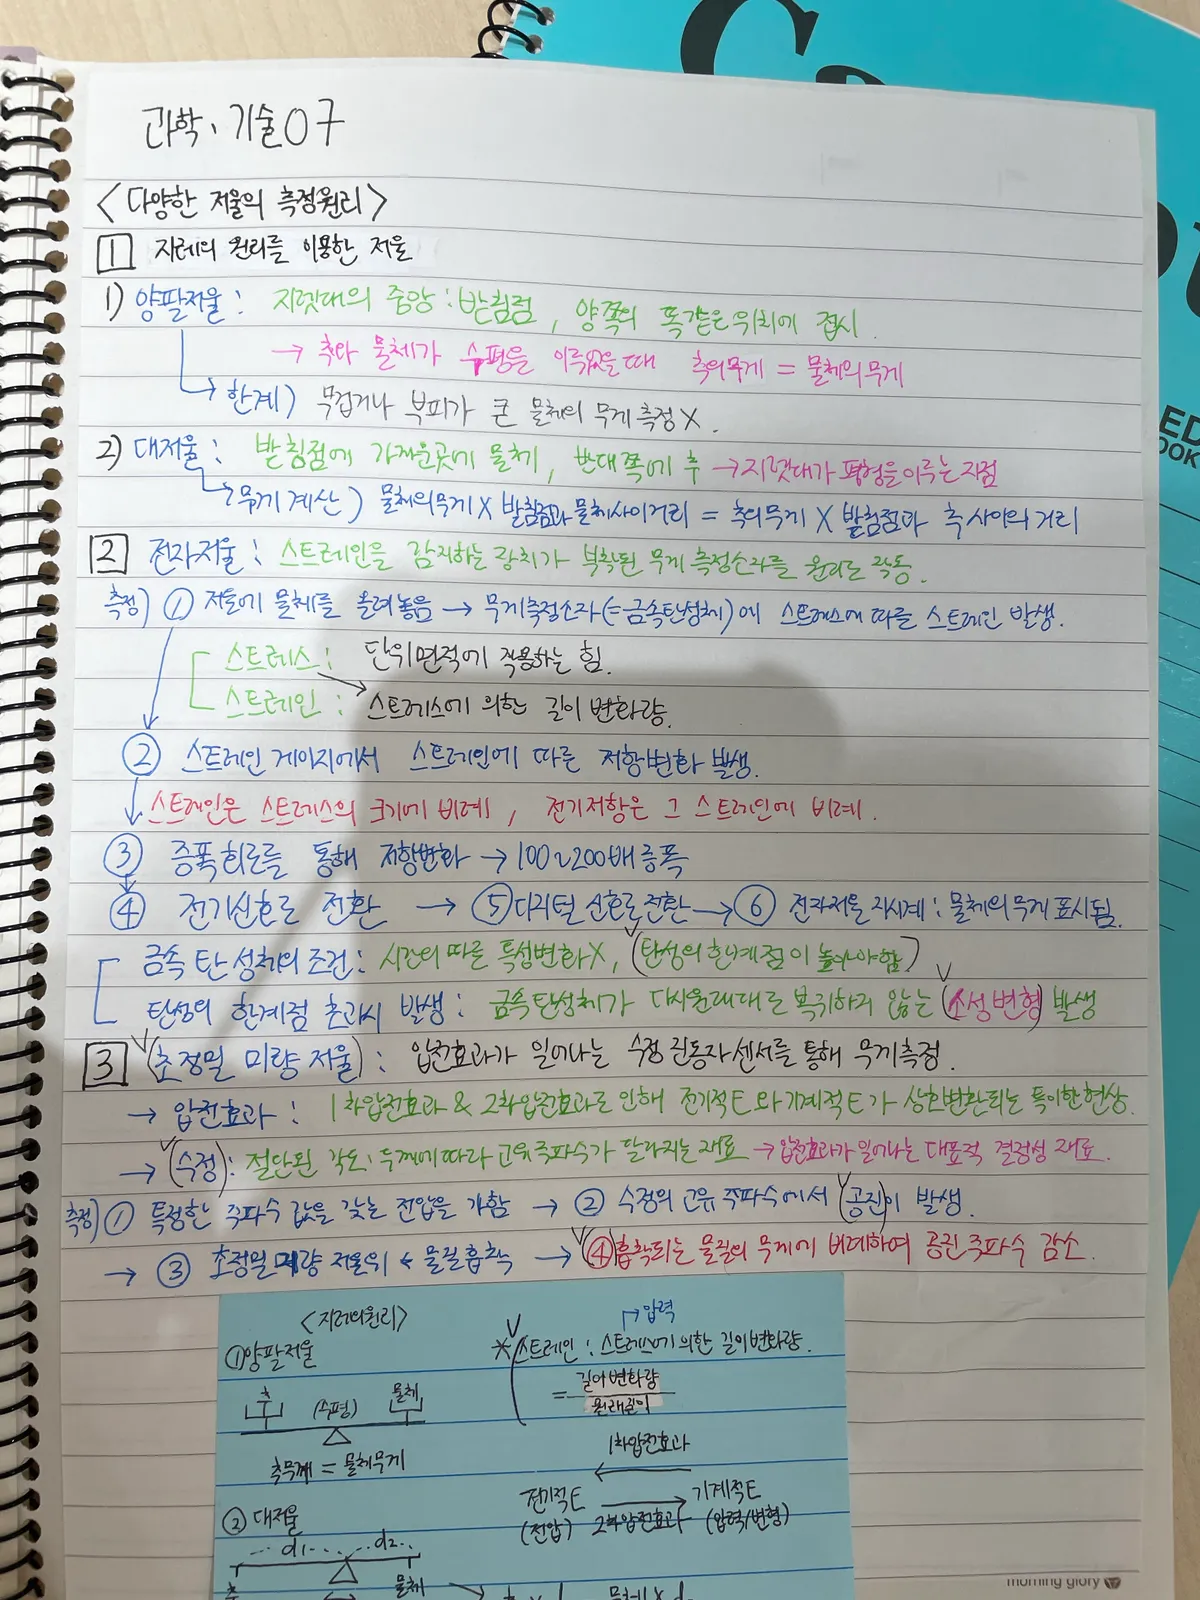 과학、기술07
<다양한 저울의 측정원리>
1 지레의 원리를 이용한 저울
1) 양팔저울 : 지렛대의 중앙 : 받침점, 양쪽의 똑같은 위치에 접시.
→ 추와 물체가 수평을 이루었을때 추의무게 = 물체의무게
한계) 무겁거나 부피가 큰 물체의 무게 측정X.
2) 대저울 : 받침점에 가까운곳에 물체, 반대쪽에 추 → 지렛대가 평형을이루는지점
무게 계산) 물체의무게 X 받침점과 물체사이거리 = 추의무게 X 받침점과 추 사이의 거리
2 전자저울 : 스트레인을 감지하는 장치가 부착된 무게 측정소자를 원리로 작동.
측정) ① 저울에 물체를 올려놓음 → 무게측정소자(=금속탄성체)에 스트레스에 따른 스트레인 발생.
스트레스 : 단위면적에 작용하는 힘.
스트레인 : 스트레스에 의한 길이 변화량.
② 스트레인 게이지에서 스트레인에 따른 저항변화 발생.
스트레인은 스트레스의 크기에 비례, 전기저항은 그 스트레인에 비례.
③ 증폭회로를 통해 저항변화 → 100~200배 증폭
④ 전기신호로 전환 → ⑤디지털 신호로전환 → ⑥ 전자저울 지시계 : 물체의무게 표시됨.
금속 탄성체의 조건 : 시간의 따른 특성변화X, (탄성의 한계점이 높아야함)
탄성의 한계점 초과시 발생 : 금속탄성체가 다시원래대로 복귀하지 않는 (소성변형) 발생
3 (초정밀 미량 저울) : 압전효과가 일어나는 수정 진동자센서를 통해 무게측정.
→ 압전효과 : 1차압전효과 & 2차압전효과로 인해 전기적E와기계적E가 상호변환되는 특이한현상.
→ (수정) : 절단된 각도·두께에따라 고유주파수가 달라지는 재료 → 압전효과가 일어나는 대표적 결정성 재료.
측정) ① 특정한 주파수 값을 갖는 전압을 가함 → ② 수정의 고유 주파수에서 (공진)이 발생.
→ ③ 초정밀 미량 저울위 ← 물질흡착 → ④흡착되는 물질의 무게에 비례하여 공진주파수 감소.
<지레의원리>
①양팔저울
추 (수평) 물체
추무게 = 물체무게
② 대저울
d₁ d₂
추 물체
→압력
*스트레인 : 스트레스에 의한 길이변화량.
= 길이변화량
원래길이
1차압전효과
전기적E 기계적E
(전압) 2차압전효과 (압력/변형)
morning glory